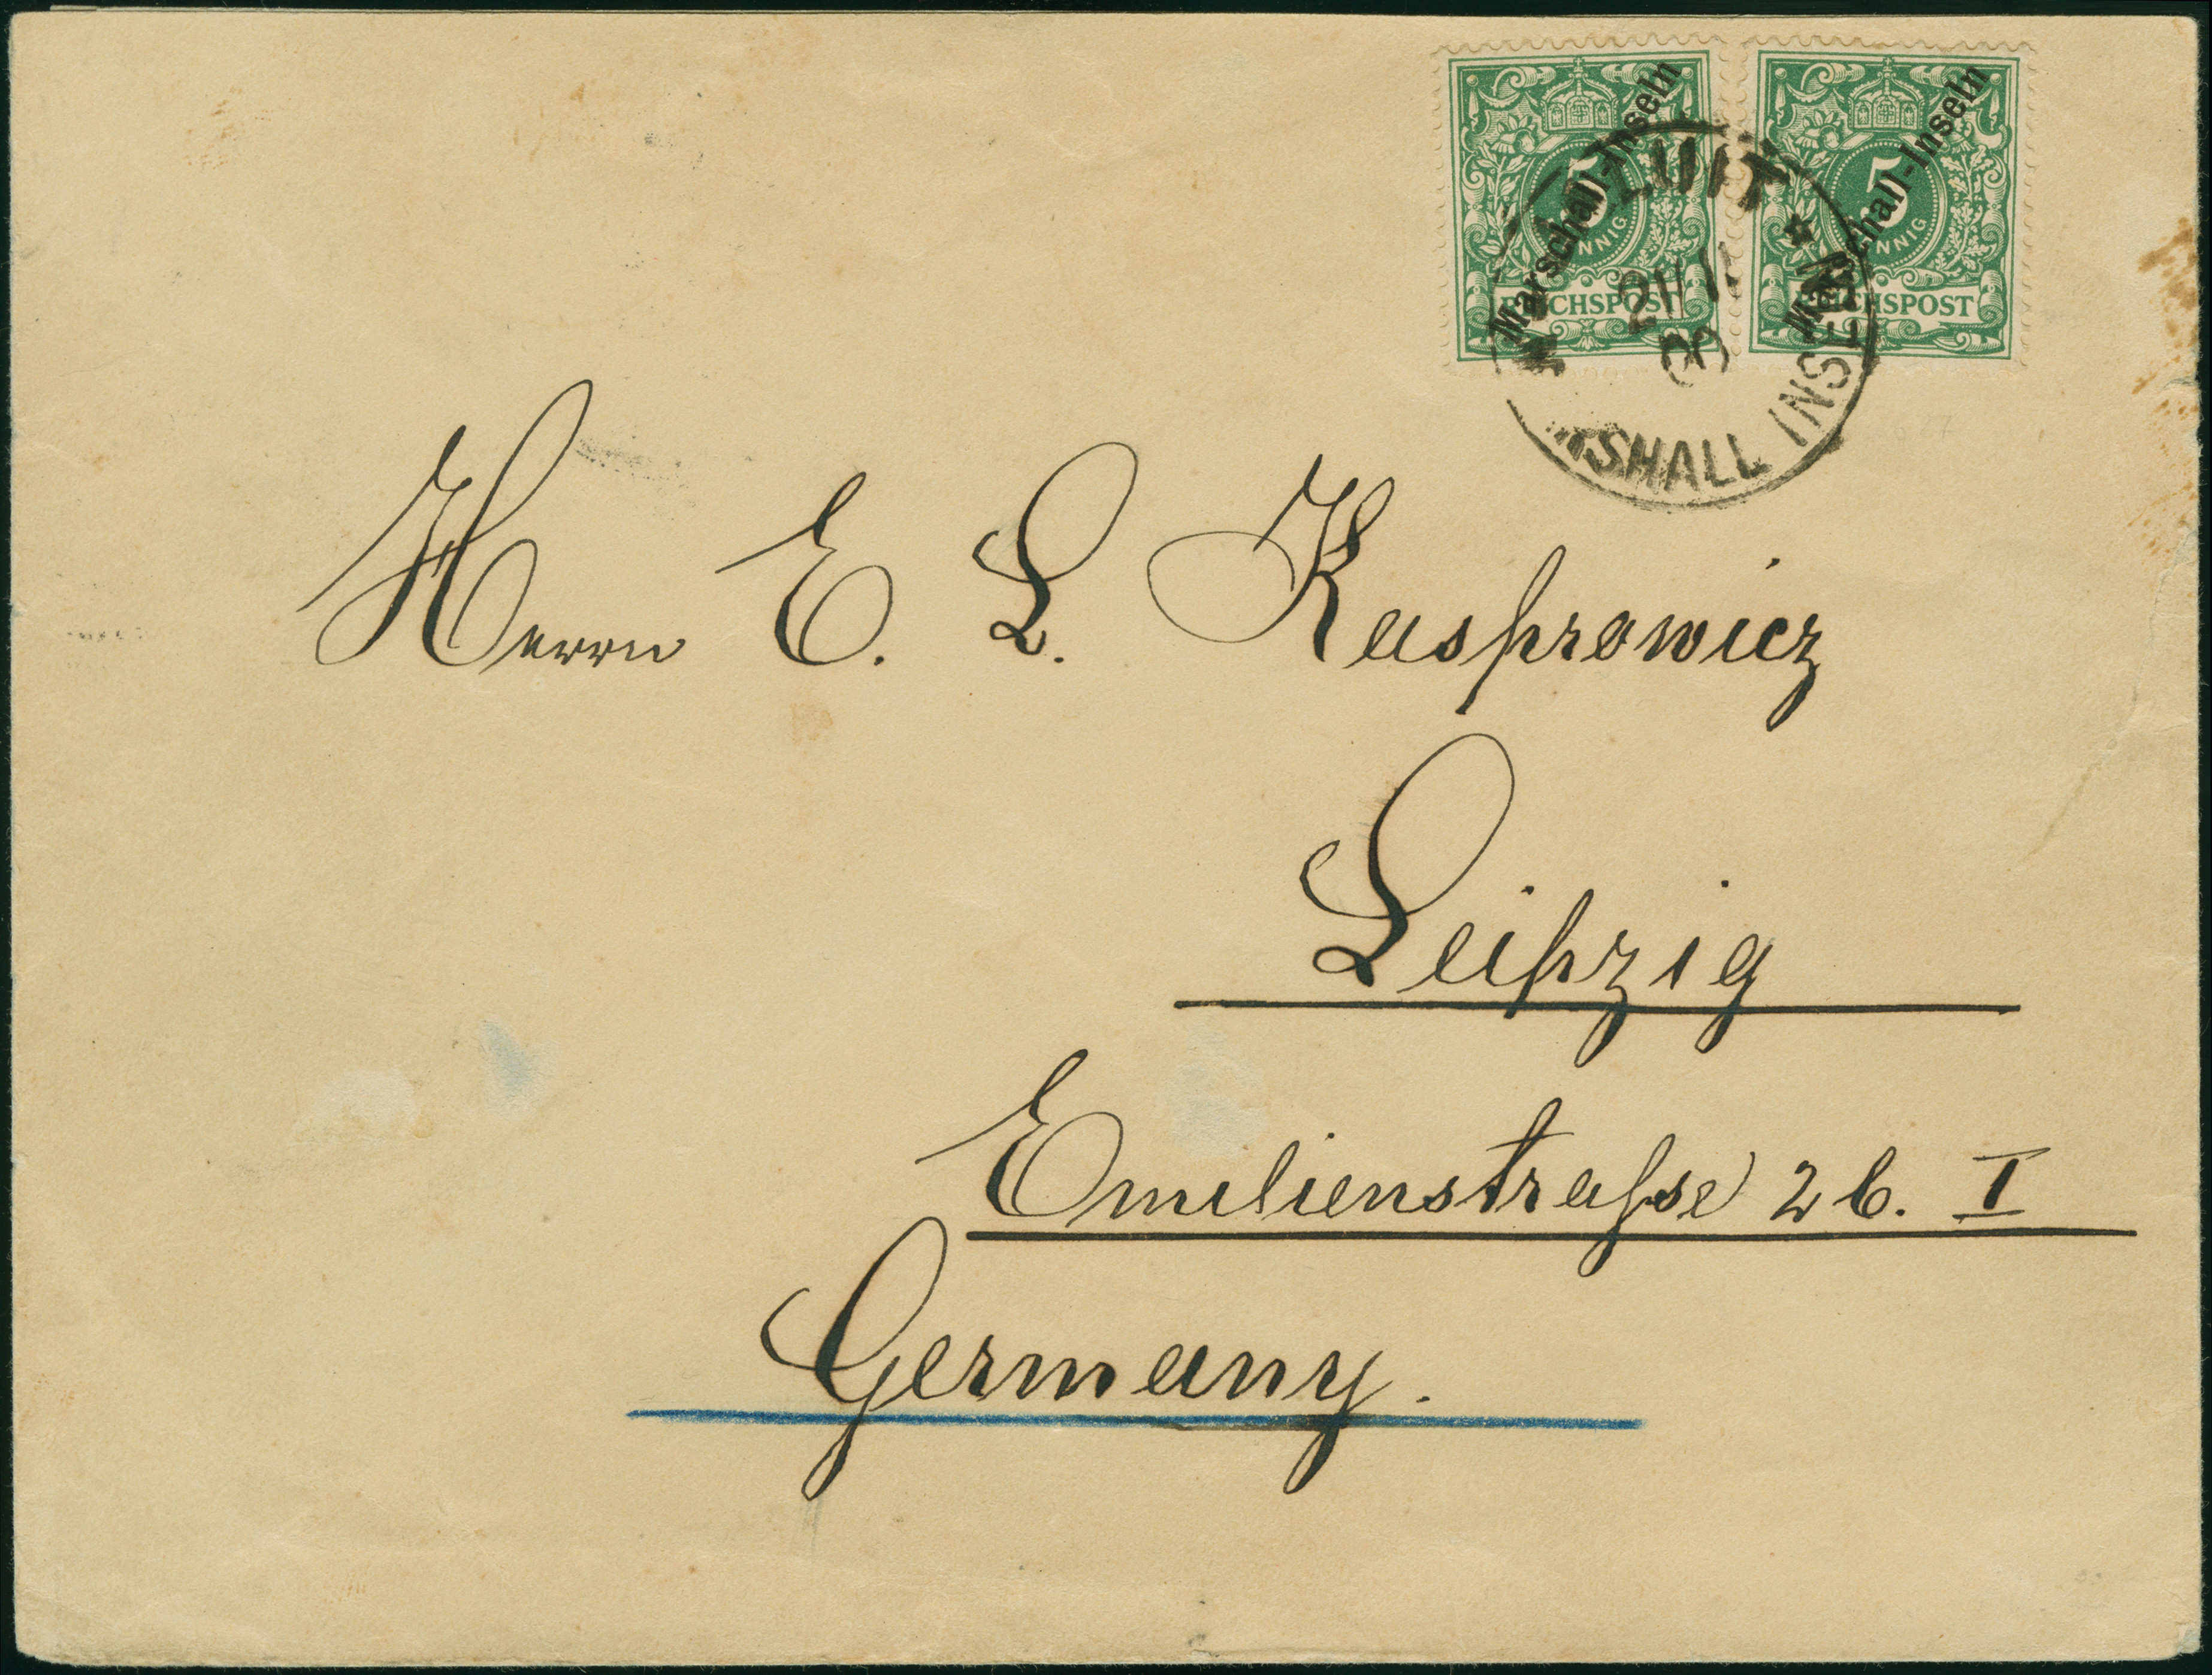 Marschall-Inseln
5
PFENNIG
REICHSPOST
Marschall-Inseln
5
PFENNIG
REICHSPOST
MARSHALL INSELN
Herrn E. L. Kasprowicz
Leipzig
Emilienstrasse 26. I
Germany.